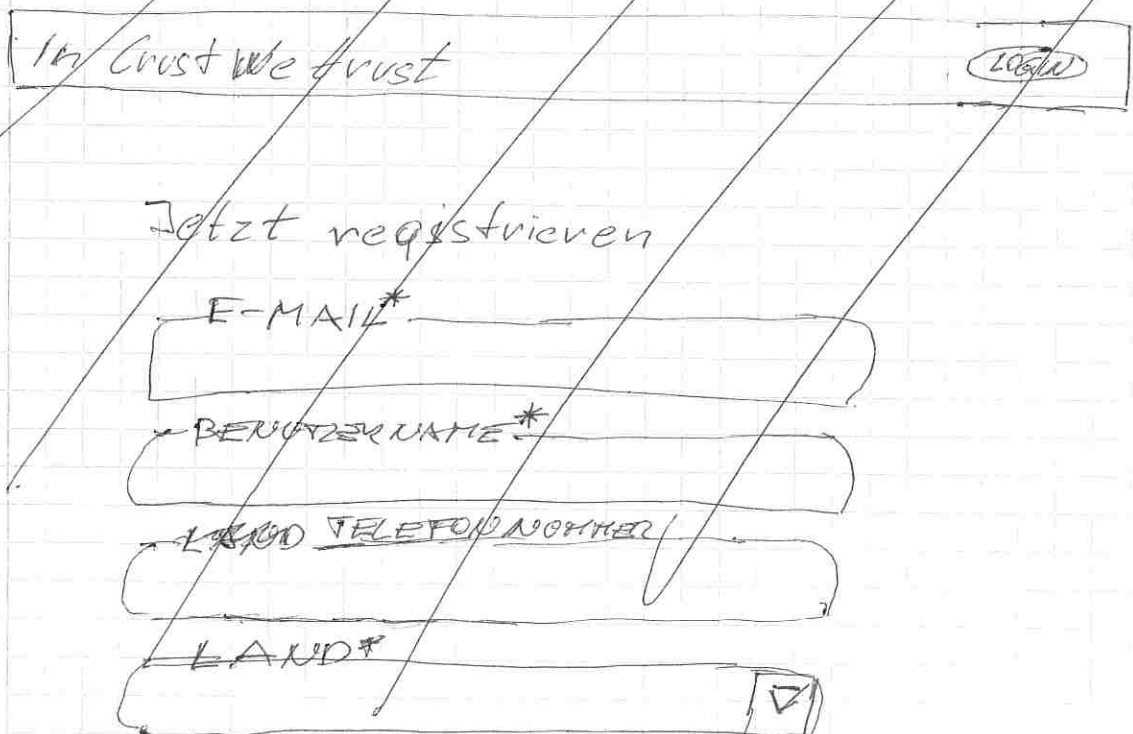 In Crust We trust
LOGIN
Jetzt registrieren
E-MAIL*
BENUTZERNAME*
LAND TELEFONNUMMER
LAND*